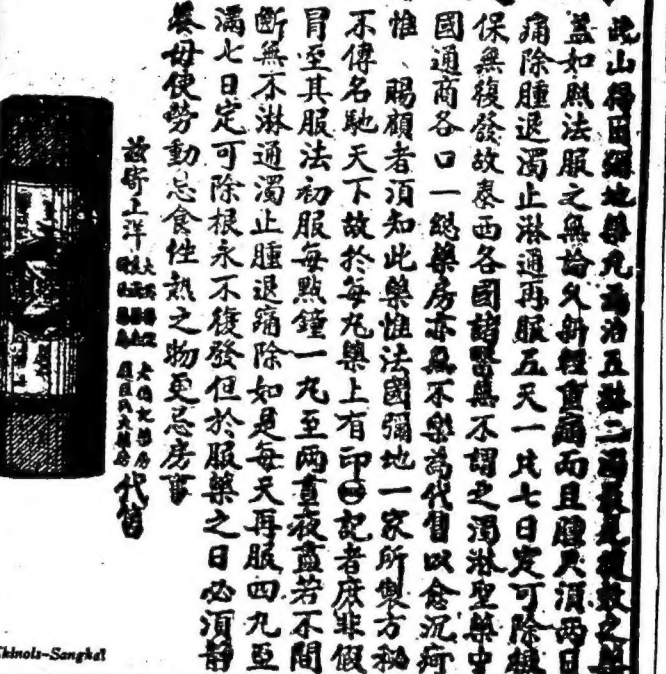 此山得田彌地藥丸專治五淋二濁最見奇效之藥
蓋如照法服之無論久新輕重痛而且腫只須两日
痛除腫退濁止淋通再服五天一共七日定可除根
保無復發故泰西各國諸醫無不謂之濁淋聖藥中
國通商各口一總藥房亦無不樂爲代售以愈沉疴
惟 賜顧者須知此藥惟法國彌地一家所製方秘
不傳名馳天下故於每丸藥上有印記者庶非假
冒至其服法初服每點鐘一丸至两晝夜盡若不間
斷無不淋通濁止腫退痛除如是每天再服四丸至
滿七日定可除根永不復發但於服藥之日必須靜
養毋使勞動忌食性熱之物更忌房事
兹寄上洋 大藥房 代售
Chinois-Sangkai